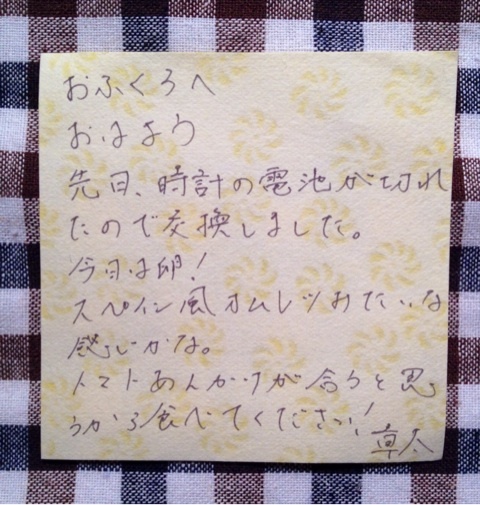 おふくろへ
おはよう
先日、時計の電池が切れ
たので交換しました。
今日は卵!
スペイン風オムレツみたいな
感じかな。
トマトあんかけが合うと思
うから食べてください!
卓太